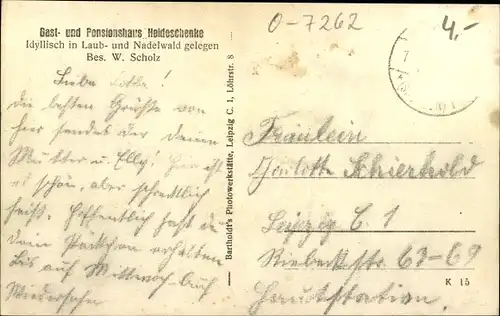 O-7262
4,-
Gast- und Pensionshaus Heideschenke
Idyllisch in Laub- und Nadelwald gelegen
Bes. W. Scholz
Liebe Lotte!
die besten Grüße von
hier sendet dir deine
Mutter u. Elly! Hier ist
es schön, aber schrecklich
heiß. Hoffentlich hast du
dein Päckchen erhalten
bis auf Mittwoch. Auf
Wiedersehn
Bartholdt's Photowerkstätte, Leipzig C. 1, Löhrstr. 8
Fräulein
Charlotte Schierhold
Leipzig C 1
Riebeckstr. 63-69
Hauptstation.
K 15